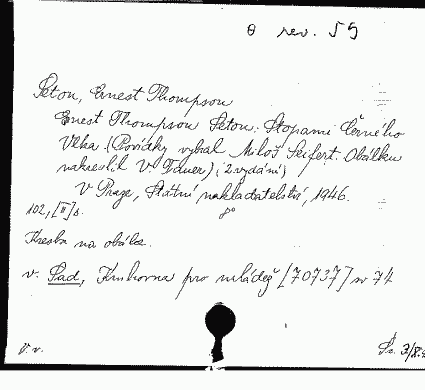 θ rev. 59
Seton, Ernest Thompson
Ernest Thompson Seton: Stopami Černého
Vlka. (Povídky vybral Miloš Seifert. Obálku
nakreslil V. Tauer) (2. vydání)
V Praze, Státní nakladatelství, 1946.
8°
102, [II] s.
Kresba na obálce.
v. Sad, Knihovna pro mládež [70737] sv 74
V. v.